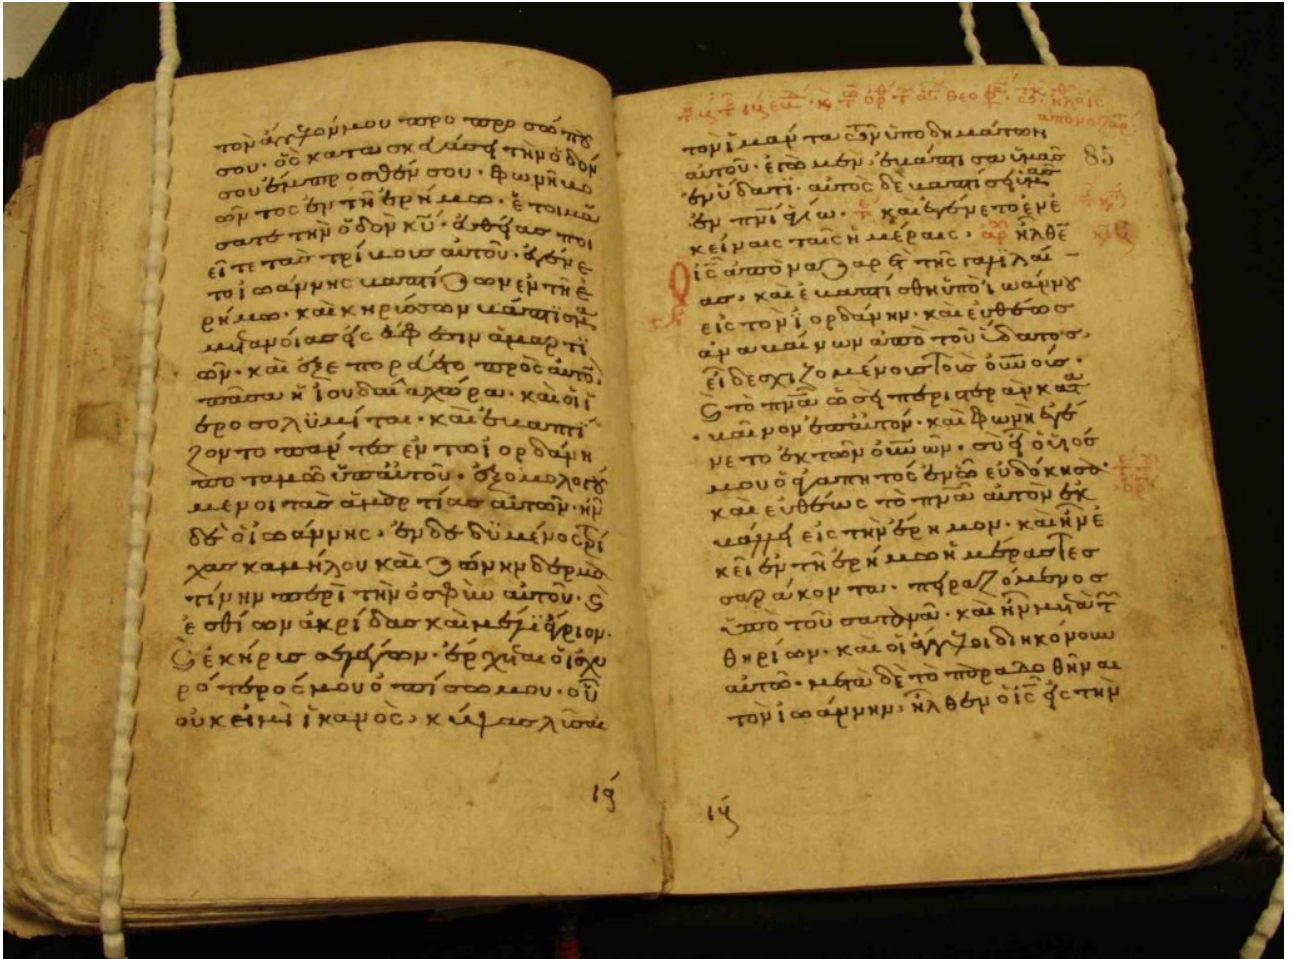 τὸν ἄγγελόν μου προ προσώπου
σου· ὃς κατασκευάσει τὴν ὁδόν
σου ἔμπροσθέν σου· φωνὴ βο
ῶντος ἐν τῇ ἐρήμω· ἑτοιμά
σατε τὴν ὁδὸν κῦ· εὐθείας ποι
εῖτε τὰς τρίβους αὐτοῦ· ἐγένε
το ἰωάννης βαπτίζων ἐν τῇ ἐ
ρήμω· καὶ κηρύσσων βάπτισμα
μετανοίας εἰς ἄφεσιν ἁμαρτι
ῶν· καὶ ἐξεπορεύετο πρὸς αὐτὸν
πᾶσα ἡ ἰουδαία χώρα· καὶ οἱ ἱ
εροσολϋμίται· καὶ ἐβαπτί
ζοντο πάντες ἐν τῶ ἰορδάνη
ποταμῶ ὑπ αὐτοῦ· ἐξομολογού
μενοι τὰς ἁμαρτίας αὐτῶν· ἦν
δὲ ὁ ἰωάννης· ἐνδεδϋμένος τρί
χας καμήλου καὶ ζώνην δερμα
τίνην περὶ τὴν ὀσφὺν αὐτοῦ· ϗ
ἐσθίων ἀκρίδας καὶ μέλι ἄγριον·
ϗ ἐκήρισσε λέγων· ἔρχεται ὁ ἰσχυ
ρότερός μου ὀπίσω μου· οὗ
οὐκ εἰμὶ ἱκανὸς· κύψας λῦσαι
ις
85
τὸν ἱμάντα τῶν ὑποδημάτων
αὐτοῦ· ἐγὼ μὲν ἐβάπτισα ὑμᾶς
ἐν ὕδατϊ· αὐτὸς δὲ βαπτίσει ὑμᾶς
ἐν πνι ἁγίω· καὶ ἐγένετο ἐν ἐ
κείναις ταῖς ἡμέραις· ἦλθεν
ἰς ἀπὸ ναζαρὲτ τῆς γαλιλαί
ας· καὶ ἐβαπτίσθη ὑπὸ ἰωάννου
εἰς τὸν ἰορδάνην· καὶ εὐθέως
ἀναβαίνων ἀπὸ τοῦ ὕδατος·
εἶδε σχιζομένους τοὺς οὐνούς·
ϗ τὸ πνα ὡσεὶ περιστερὰν κατα
βαῖνον ἐπ αὐτόν· καὶ φωνὴ ἐγέ
νετο ἐκ τῶν οὐνῶν· σὺ εἶ ὁ υἱός
μου ὁ ἀγαπητὸς ἐν ῶ εὐδόκησα·
καὶ εὐθέως τὸ πνα αὐτὸν ἐκ
βάλλει εἰς τὴν ἔρημον· καὶ ἦν ἐ
κεῖ ἐν τῇ ἐρήμω ἡμέρας τεσ
σαράκοντα· πειραζόμενος
ὑπὸ τοῦ σατανᾶ· καὶ ἦν μετὰ τῶν
θηρίων· καὶ οἱ ἄγγελοι διηκόνουν
αὐτῶ· μετὰ δὲ τὸ παραδοθῆναι
τὸν ἰωάννην· ἦλθεν ὁ ἰς εἰς τὴν